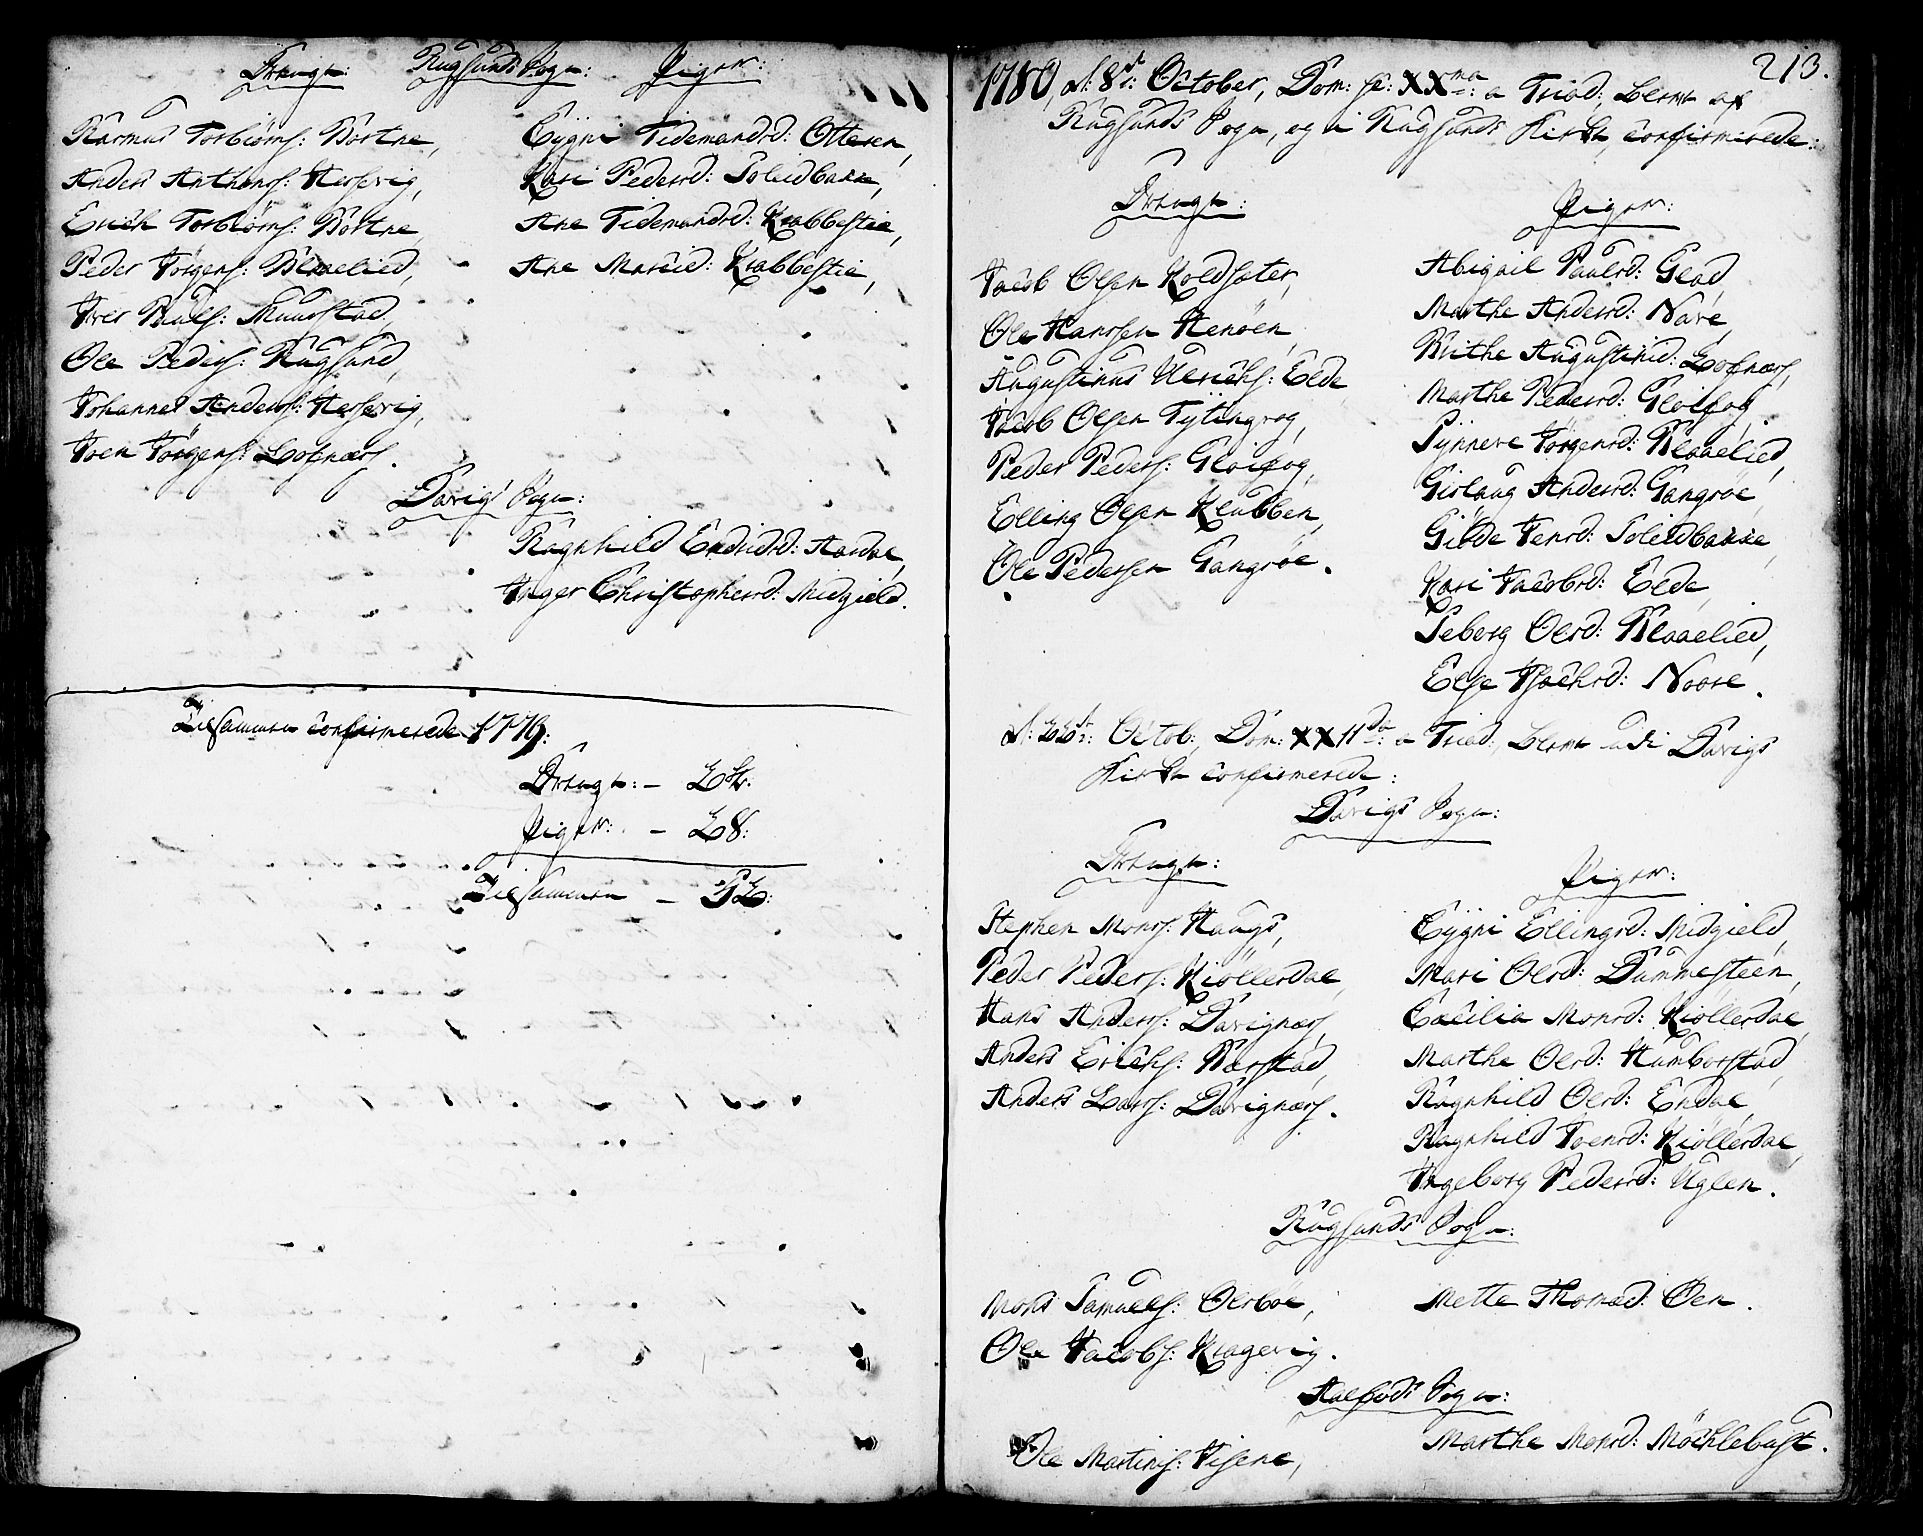 Rugsunds Sogn:
Drenge:
Piger:
Rasmus Torbiörns: Bortne,
Anders Anthons: Hessevig,
Erich Torbiörns: Bortne,
Peder Jörgens: Blaaelied,
Iver Pauls: Muurstad,
Ole Peders: Rugsund,
Johannes Anders: Hessevig,
Joen Jörgens: Lofnæs.
Eygni Tidemandsd: Otteren,
Kari Pedersd: Soleidbakke,
Ane Tidemandsd: Krabbestie,
Ane Marcid: Krabbestie,
Davigs Sogn:
Ragnhild Endridsd: Aardal,
Inger Christophersd: Midgield.
Tilsammen confirmerede 1779:
Drenge: – 24.
Piger: – 28:
Tilsammen – 52:
213.
1780, d: 8de: October, Dom: XXma: a Trinit:, Børn af
Rugsunds Sogn, og i Rugsunds Kirke, confirmerede:
Drenge:
Jacob Olsen Koldsæter,
Ole Hanssen Henöen,
Augustinus Ulrichs: Elde,
Jacob Olsen Tytingvog,
Peder Peders: Gloifog,
Elling Olsen Klubben,
Ole Pedersen Gangsöe.
Piger:
Abigail Paulsd: Glad,
Marthe Andersd: Nave,
Birthe Augustinid: Lofnæs,
Marthe Pedersd: Gloifog,
Synneve Jörgensd: Blaaelied,
Girlaug Andersd: Gangsöe,
Gilde Jensd: Soleidbakke,
Kari Jacobsd: Elde,
Seborg Olsd: Blaaelied,
Else Isachsd: Noore.
d: 22de: Octob:, Dom: XXIIda: a Trinit:, Børn udi Davigs
Kirke confirmerede:
Davigs Sogn:
Drenge:
Stephen Mons: Haugs,
Peder Peders: Kiöllerdal,
Hans Anders: Davignæs,
Anders Erichs: Rærstad,
Anders Lars: Davignæs.
Piger:
Eygni Ellingsd: Midgield,
Mari Olsd: Dammesteen,
Cæcilia Monsd: Kiöllerdal,
Marthe Olsd: Humborstad,
Ragnhild Olsd: Endal,
Ragnhild Joensd: Kiöllerdal,
Ingeborg Pedersd: Uglen.
Rugsunds Sogn:
Mons Samuels: Olsböe,
Ole Jacobs: Kragevig.
Mette Thomæd: Öen.
Aalfods Sogn:
Ole Martins: Hisene,
Marthe Monsd: Möchlebust.